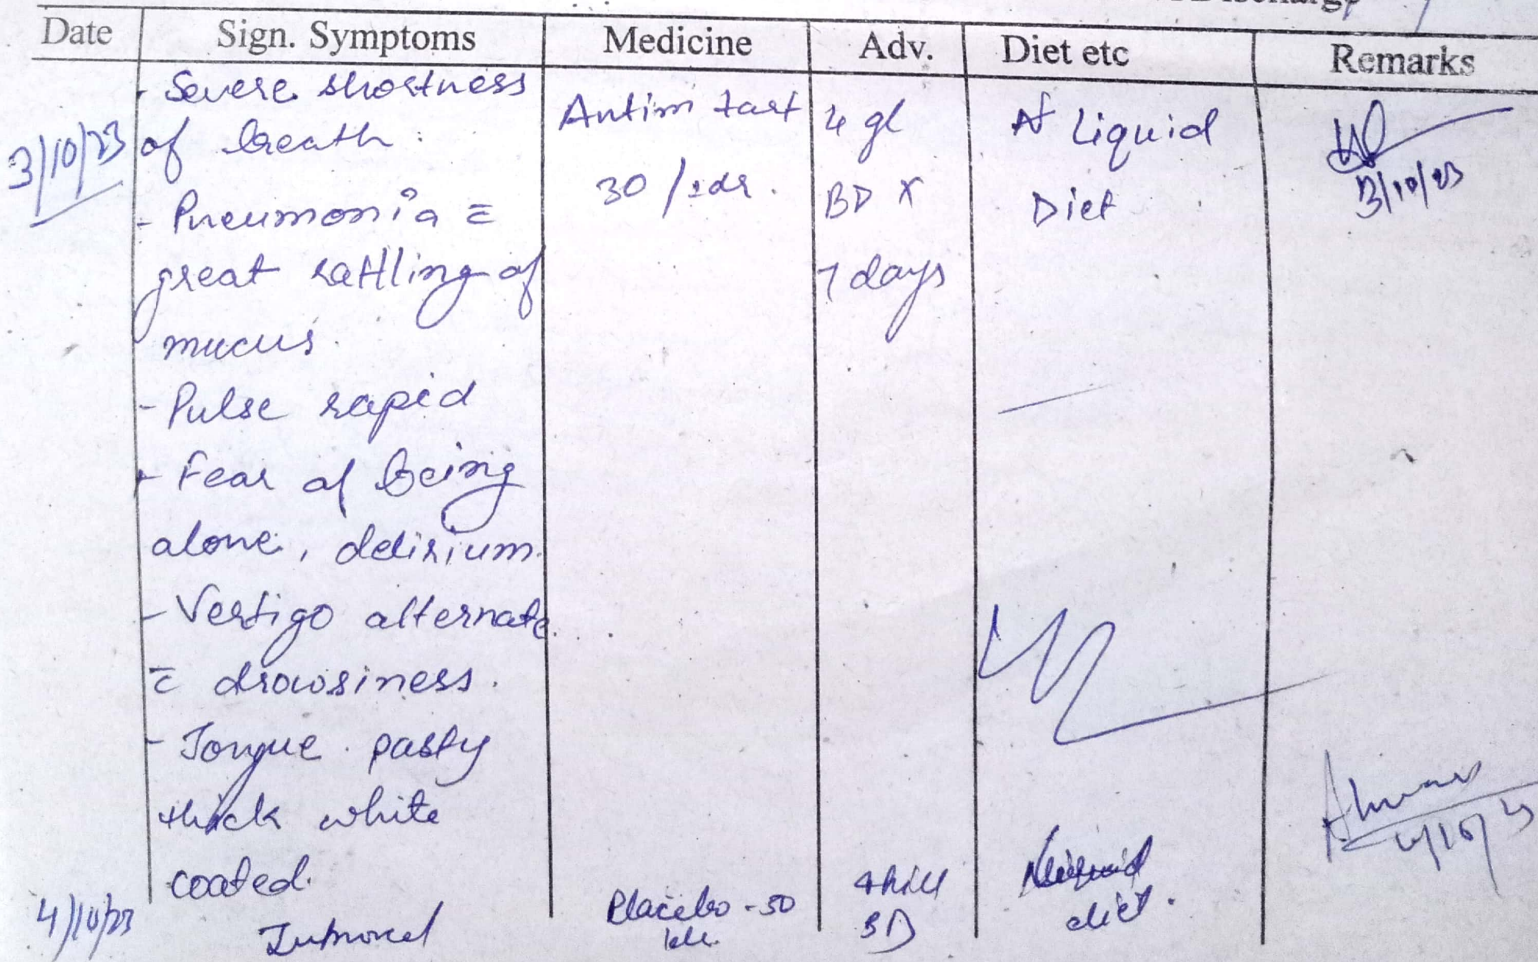 Date Sign. Symptoms Medicine Adv. Diet etc Remarks
3/10/23
- Severe shortness
of breath.
- Pneumonia c̄
great rattling of
mucus.
- Pulse rapid
- Fear of being
alone, delirium.
- Vertigo alternate
c̄ drowsiness.
- Tongue pasty
thick white
coated.
Antim tart
30 /
4 gl
BD X
7 days
Liquid
Diet
3/10/23
4/10/23
4/10/23
Placebo - 30
4 pill
BD
diet.